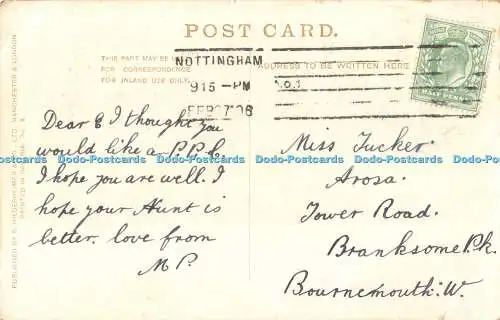 POST CARD.
THIS PART MAY BE
FOR CORRESPONDENCE
FOR INLAND USE ONLY.
ADDRESS TO BE WRITTEN HERE
NOTTINGHAM
915-PM
FEB 27 06
NO.1
Dear E I thought you
would like a P.P.C.
I hope you are well. I
hope your Aunt is
better. love from
M P.
Miss Tucker.
Arosa.
Tower Road.
Branksome Pk.
Bournemouth. W.
Dodo-Postcards Dodo-Postcards Dodo-Postcards Dodo-Postcards Dodo-Postcards Dodo-Postcards
Dodo-Postcards Dodo-Postcards Dodo-Postcards Dodo-Postcards Dodo-Postcards Dodo-Postcards